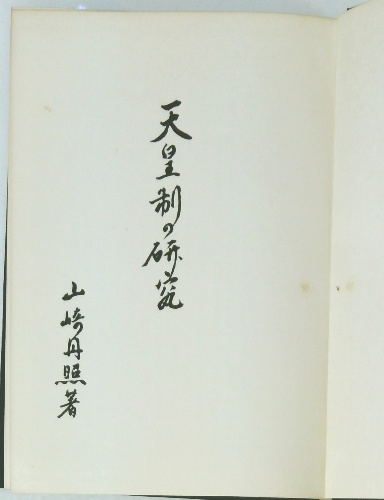 天皇制の研究
山崎丹照著